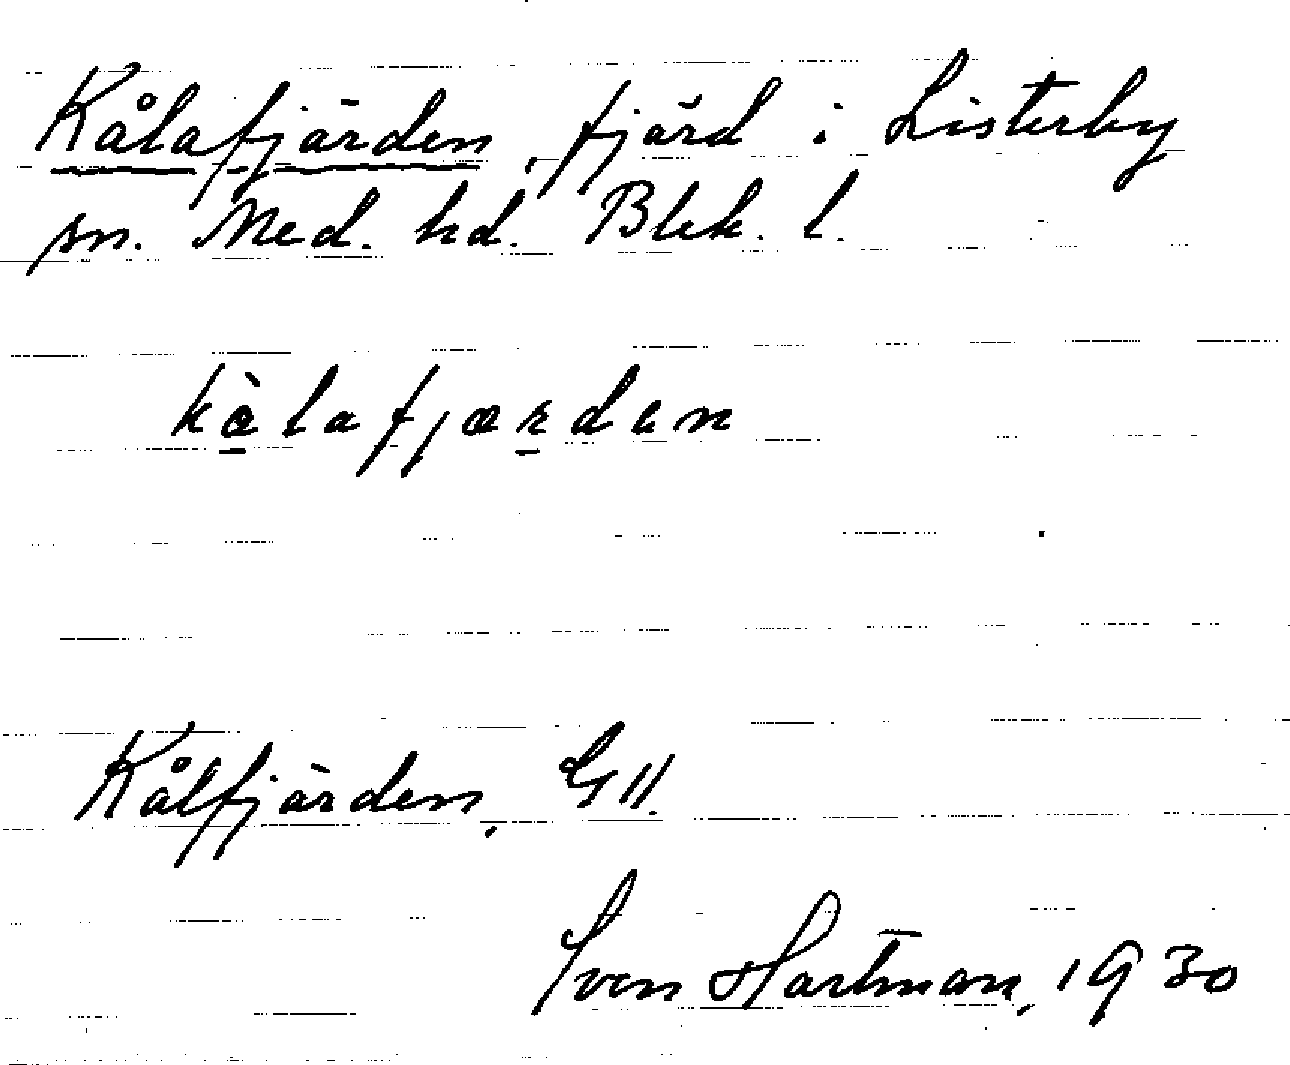 Kålafjärden, fjärd i Listerby
sn. Med. hd. Blek. l.
kàlafjærden
Kålfjärden, G 11.
Sven Hartman, 1930